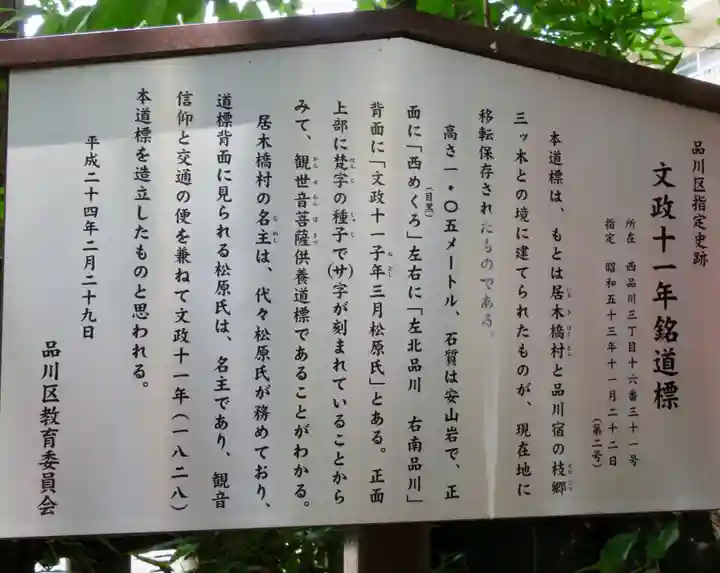 品川区指定史跡
文政十一年銘道標
所在 西品川三丁目十六番三十一号
指定 昭和五十三年十一月二十二日
(第二号)
本道標は、もとは居木橋村と品川宿の枝郷
三ッ木との境に建てられたものが、現在地に
移転保存されたものである。
高さ一・〇五メートル、石質は安山岩で、正
面に「西めくろ(目黒)」左右に「左北品川 右南品川」
背面に「文政十一子年三月松原氏」とある。正面
上部に梵字の種子で(サ)字が刻まれていることから
みて、観世音菩薩供養道標であることがわかる。
居木橋村の名主は、代々松原氏が務めており、
道標背面に見られる松原氏は、名主であり、観音
信仰と交通の便を兼ねて文政十一年(一八二八)
本道標を造立したものと思われる。
平成二十四年二月二十九日
品川区教育委員会